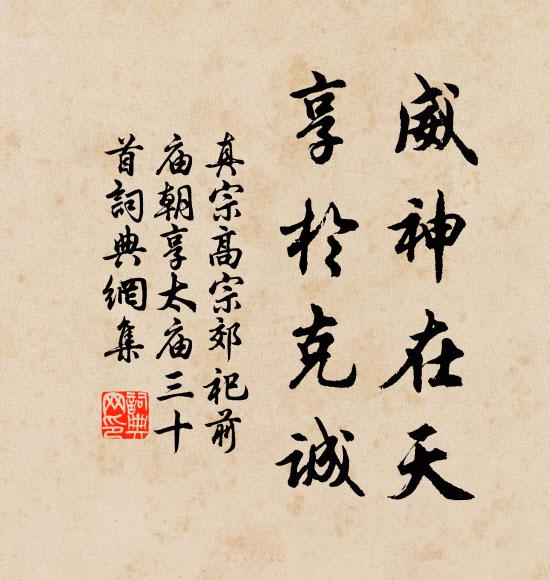 威神在天
享於克誠
真宗高宗郊祀前
庙朝享太庙三十
首詞典網集
詞典
网印